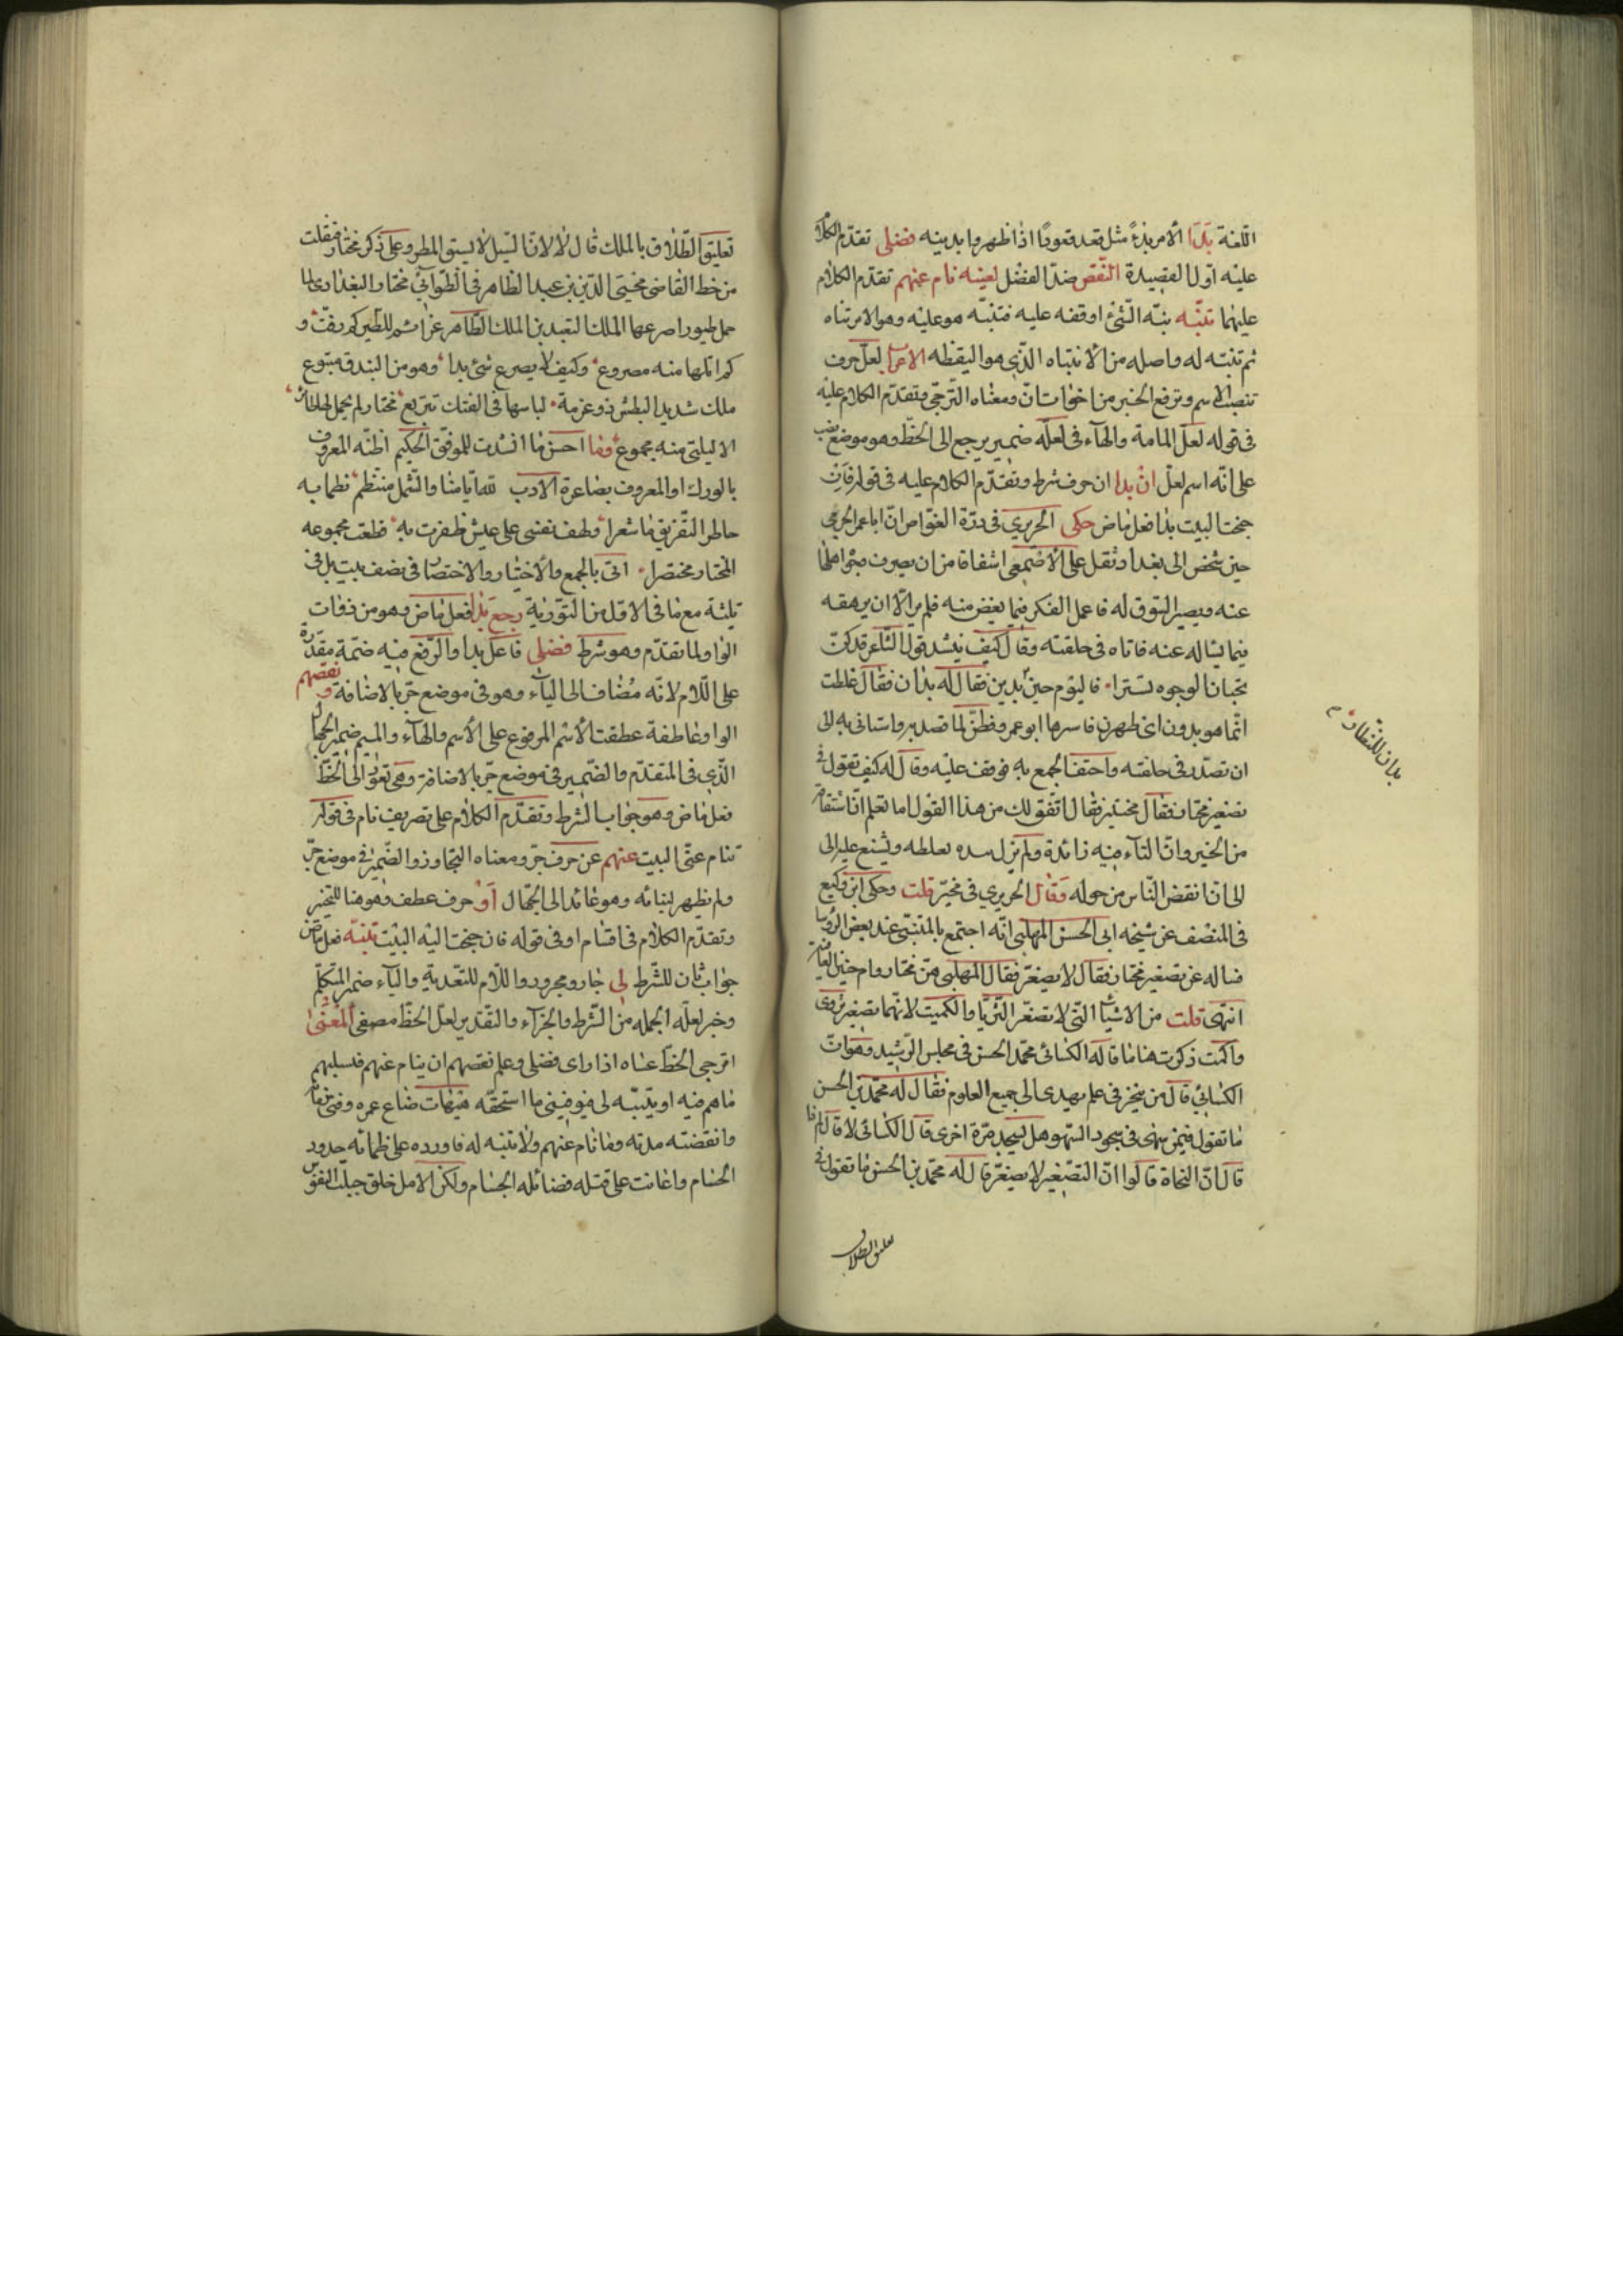 اللغة بدا الأمر بدوًا مثل قعد قعودًا اذا ظهر وابدينه فضلى تقدّم الكلام
عليه اول القصيدة النّقص ضدّ الفضل لعينه نام عنهم تقدّم الكلام
عليهما تنبّه نبّه الشئ اوقفه عليه فتنبّه هو عليه وهو الامر تناه
ثم تنبّه له واصله من الانتباه الذى هو اليقظه الاعراب لعلّ حرف
تنصب الاسم وترفع الخبر من اخوات انّ ومعناه الترجّى وتقدّم الكلام عليه
فى قوله لعلّ المامة والهاء فى لعلّه ضمير يرجع الى الحظّ وهو موضع نصب
على انّه اسم لعلّ ان بدا ان حرف شرط وتقدّم الكلام عليه فى قوله فان
جنحت البيت بدا فعل ماض حكى الحريري فى درّة الغوّاص انّ ابا عمر الجرمى
حين شخص الى بغداد ثقل على الأصمعى اشفاقا من ان يصرف وجوه اهلها
عنه ويصير السوق له فاعمل الفكر فيما يغض منه فلم ير الّا ان يرهقه
فيما يساله عنه فاتاه فى حلقته وقال كيف ينشد قول الشاعر قد كنّ
يخبان الوجوه تسترا فاليوم حين بدين فقال له بدان فقال غلطت
بدان للنظار م
انّما هو بدون اى ظهرن فاسرها ابو عمر وفطن لما قصد به واستانى به الى
ان تصدّر فى حلقته واحتف الجمع به فوقف عليه وقال له كيف تقول فى
تصغير مختار فقال مخيتير فقال انفت لك من هذا القول اما تعلم انّ اشتقاقه
من الخير وانّ التاء فيه زائدة ولم يزل يغلطه ويشنع عليه الى
الى ان انفض النّاس من حوله وقال الحريري فى مخيّر قلت وحكى ابن وكيع
فى المنصف عن شيخه ابى الحسن المهلبى انّه اجتمع بالمتنبّى عند بعض الرؤسا
فساله عن تصغير مختار فقال لا يصغّر فقال المهلبى
انتهى قلت من الاشياء التى لا تصغّر الثّريّا والكميت لانّهما تصغير ثروى
واكمت ذكرت هنا ما قاله الكسائى محمّد الحسن فى مجلس الرّشيد وهو انّ
الكسائي قال من تبحّر فى علم يهدى الى جميع العلوم فقال له محمّد بن الحسن
ما تقول فيمن سهى فى سجود السّهو هل يسجد مرّة اخرى قال الكسائى لا قال لم ذا
قال لانّ النحاة قالوا انّ التّصغير لا يصغّر قال له محمّد بن الحسن ما تقول فى
تعليق الطلاق
تعليق الطّلاق بالملك قال لا لانّ السّيل لا يسبق المطر وعلى ذكر مختار فنقلت
من خط القاضى محيى الدّين بن عبد الظاهر فى الطّواشي مختار البغدادى لما
حمل طيورا صرعها الملك السعيد بن الملك الظّاهر
كم انلها منه مصروع وكيف لا يصرع شئ بدا وهو من البندق متبوع
ملك شديد البطش ذو عزمة لباسها فى الفتك تدريع مختار لم يحمل لها طائر
الا ليلتى منه مجموع وما احسن ما انشدت للموفّق الحكيم اظنّه المعروف
بالورك او المعروف بصناعة الادب لله ايّامنا والشّمل منتظم نظما به
خاطر التّفريق ما شعرا ولهف نفسى على عيش ظفرت به قطعت مجموعه
المختار مختصرا اتى بالجمع والأختيار والاختصار فى نصف بيت بل فى
ثلثة مع ما فى الاوّل من التّورية رجع بدا فعل ماض وهو من ذوات
الواو لما تقدّم وهو شرط فضلى فاعل بدا والرّفع فيه ضمّة مقدّرة
على اللّام لانّه مُضاف الى الياء وهو فى موضع جرّ بالاضافة ونقصهم
الواو عاطفة عطفت الأسم المرفوع على الأسم والهاء والميم ضمير الجهال
الذّى فى المتقدّم والضّمير فى موضع جرّ بالاضافة وهى تعود الى الحظّ
فعل ماض وهو جواب الشرط وتقدّم الكلام على تصريف نام فى قوله
تنام عنّى البيت عنهم عن حرف جرّ ومعناه التجاوز والضّمير فى موضع جرّ
ولم يظهر لبنائه وهو عائد الى الجهّال أو حرف عطف وهو هنا للتخيير
وتقدّم الكلام فى اقسام او فى قوله فان جنحت اليه البيت تنبّه فعل ماض
جواب ثان للشّرط لى جار ومجرور واللّام للتّعدية والياء ضمير المتكلّم
وخبر لعلّه الجمله من الشّرط والجزاء والتّقدير لعلّ الحظّ مصغى المعنى
اترجى الحظّ عساه اذا راى فضلى وعلم نقصهم ان ينام عنهم فيسلبهم
ما هم فيه او يتنبّه لى فيوفينى ما استحقّه هيهات ضاع عمره وفنى
وانقضت مدته وما نام عنهم ولا تنبّه له فاورده على ظمائه حدود
الحسام واعانت على قتله فضائله الجسام ولكن الامل خلق جبلت النفوس